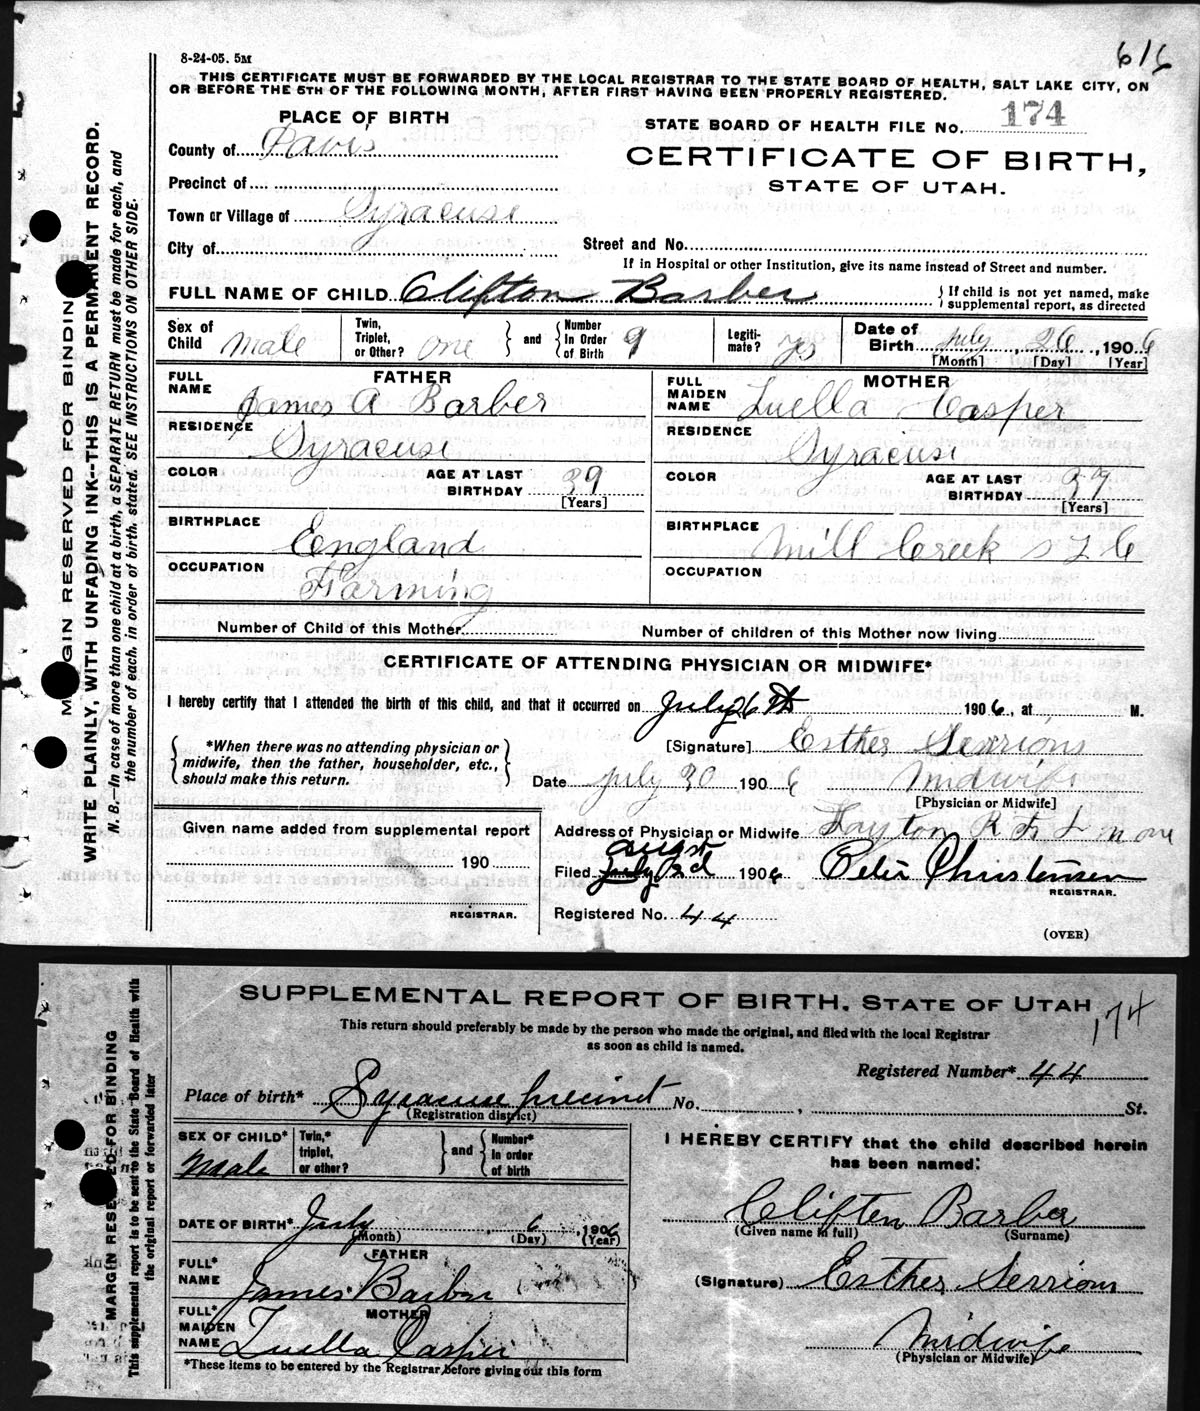 616
8-24-05. 5M
THIS CERTIFICATE MUST BE FORWARDED BY THE LOCAL REGISTRAR TO THE STATE BOARD OF HEALTH, SALT LAKE CITY, ON
OR BEFORE THE 5TH OF THE FOLLOWING MONTH, AFTER FIRST HAVING BEEN PROPERLY REGISTERED.
PLACE OF BIRTH
STATE BOARD OF HEALTH FILE No. 174
County of Davis
CERTIFICATE OF BIRTH,
Precinct of
STATE OF UTAH.
Town or Village of Syracuse
City of
Street and No.
If in Hospital or other Institution, give its name instead of Street and number.
FULL NAME OF CHILD Clifton Barber
If child is not yet named, make
supplemental report, as directed
Sex of Child Male
Twin, Triplet, or Other? one
and
Number In Order of Birth 9
Legiti-mate? yes
Date of Birth July, 26, 1906
[Month] [Day] [Year]
FATHER
FULL NAME James A Barber
MOTHER
FULL MAIDEN NAME Luella Casper
RESIDENCE Syracuse
RESIDENCE Syracuse
COLOR
AGE AT LAST BIRTHDAY 39
[Years]
COLOR
AGE AT LAST BIRTHDAY 39
[Years]
BIRTHPLACE England
BIRTHPLACE Mill Creek S L C
OCCUPATION Farming
OCCUPATION
Number of Child of this Mother
Number of children of this Mother now living
CERTIFICATE OF ATTENDING PHYSICIAN OR MIDWIFE*
I hereby certify that I attended the birth of this child, and that it occurred on July 26th 1906, at M.
*When there was no attending physician or
midwife, then the father, householder, etc.,
should make this return.
[Signature] Esther Sessions
Date July 30 1906 Midwife
[Physician or Midwife]
Given name added from supplemental report
190
REGISTRAR.
Address of Physician or Midwife Layton R F D
August
Filed July 2d 1906 Peter Christensen
REGISTRAR.
Registered No. 44
(OVER)
MARGIN RESERVED FOR BINDING
WRITE PLAINLY, WITH UNFADING INK--THIS IS A PERMANENT RECORD.
N. B.—In case of more than one child at a birth, a SEPARATE RETURN must be made for each, and
the number of each, in order of birth, stated. SEE INSTRUCTIONS ON OTHER SIDE.
SUPPLEMENTAL REPORT OF BIRTH, STATE OF UTAH
174
This return should preferably be made by the person who made the original, and filed with the local Registrar
as soon as child is named.
Registered Number* 44
Place of birth* Syracuse precinct No. , St.
(Registration district)
SEX OF CHILD* Male
Twin,* triplet, or other?
and
Number* In order of birth
I HEREBY CERTIFY that the child described herein
has been named:
DATE OF BIRTH* July, 6, 1906
(Month) (Day) (Year)
Clifton Barber
(Given name in full) (Surname)
FATHER
FULL* NAME James Barber
(Signature) Esther Sessions
MOTHER
FULL* MAIDEN NAME Luella Casper
Midwife
(Physician or Midwife)
*These items to be entered by the Registrar before giving out this form
MARGIN RESERVED FOR BINDING
This supplemental report is to be sent to the State Board of Health with
the original report or forwarded later